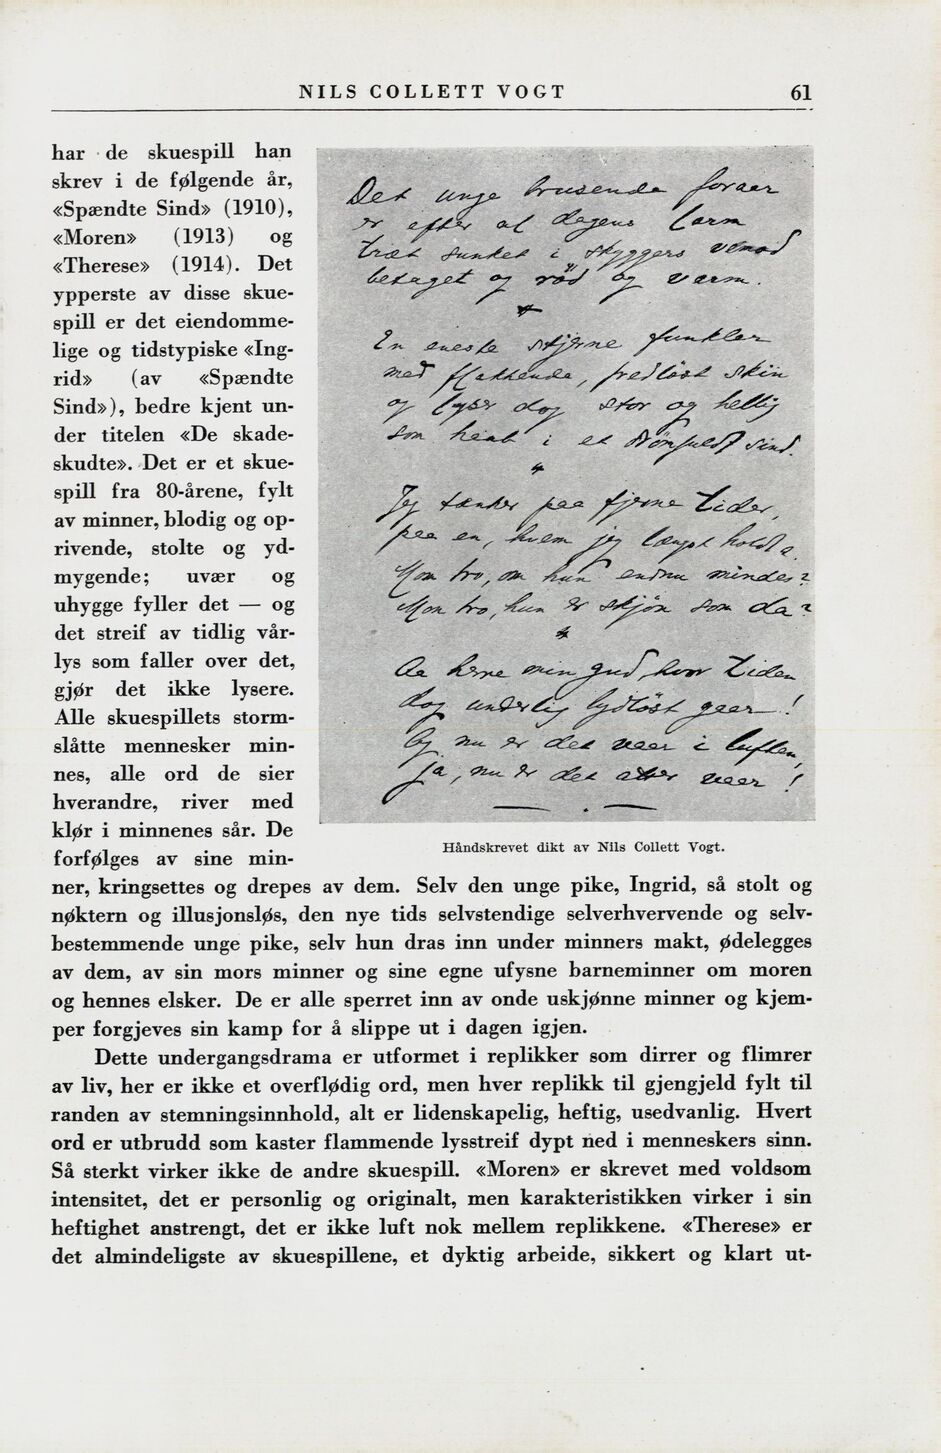 NILS COLLETT VOGT 61
har de skuespill han
skrev i de følgende år,
«Spændte Sind» (1910),
«Moren» (1913) og
«Therese» (1914). Det
ypperste av disse skue-
spill er det eiendomme-
lige og tidstypiske «Ing-
rid» (av «Spændte
Sind»), bedre kjent un-
der titelen «De skade-
skudte». Det er et skue-
spill fra 80-årene, fylt
av minner, blodig og op-
rivende, stolte og yd-
mygende; uvær og
uhygge fyller det — og
det streif av tidlig vår-
lys som faller over det,
gjør det ikke lysere.
Alle skuespillets storm-
slåtte mennesker min-
nes, alle ord de sier
hverandre, river med
klør i minnenes sår. De
forfølges av sine min-
Det unge brusende foraar
er efter al dagens larm
træt sunket i skyggers vemod
betaget og rød og varm.
En eneste stjerne funkler
med flakkende, fredløst skin
og lyser dog stor og hellig
som haab i et drømfuldt sind.
Jeg tænker paa fjerne tider,
paa en, hvem jeg længst holdt a
Mon tro, om hun endnu mindes?
Mon tro, hun er skjøn som da?
Aa herre min gud, hvor tiden
dog underlig lydløst gaar!
Og nu er det vaar i luften,
ja, nu er det atter vaar!
Håndskrevet dikt av Nils Collett Vogt.
ner, kringsettes og drepes av dem. Selv den unge pike, Ingrid, så stolt og
nøktern og illusjonsløs, den nye tids selvstendige selverhvervende og selv-
bestemmende unge pike, selv hun dras inn under minners makt, ødelegges
av dem, av sin mors minner og sine egne ufysne barneminner om moren
og hennes elsker. De er alle sperret inn av onde uskjønne minner og kjem-
per forgjeves sin kamp for å slippe ut i dagen igjen.
Dette undergangsdrama er utformet i replikker som dirrer og flimrer
av liv, her er ikke et overflødig ord, men hver replikk til gjengjeld fylt til
randen av stemningsinnhold, alt er lidenskapelig, heftig, usedvanlig. Hvert
ord er utbrudd som kaster flammende lysstreif dypt ned i menneskers sinn.
Så sterkt virker ikke de andre skuespill. «Moren» er skrevet med voldsom
intensitet, det er personlig og originalt, men karakteristikken virker i sin
heftighet anstrengt, det er ikke luft nok mellem replikkene. «Therese» er
det almindeligste av skuespillene, et dyktig arbeide, sikkert og klart ut-